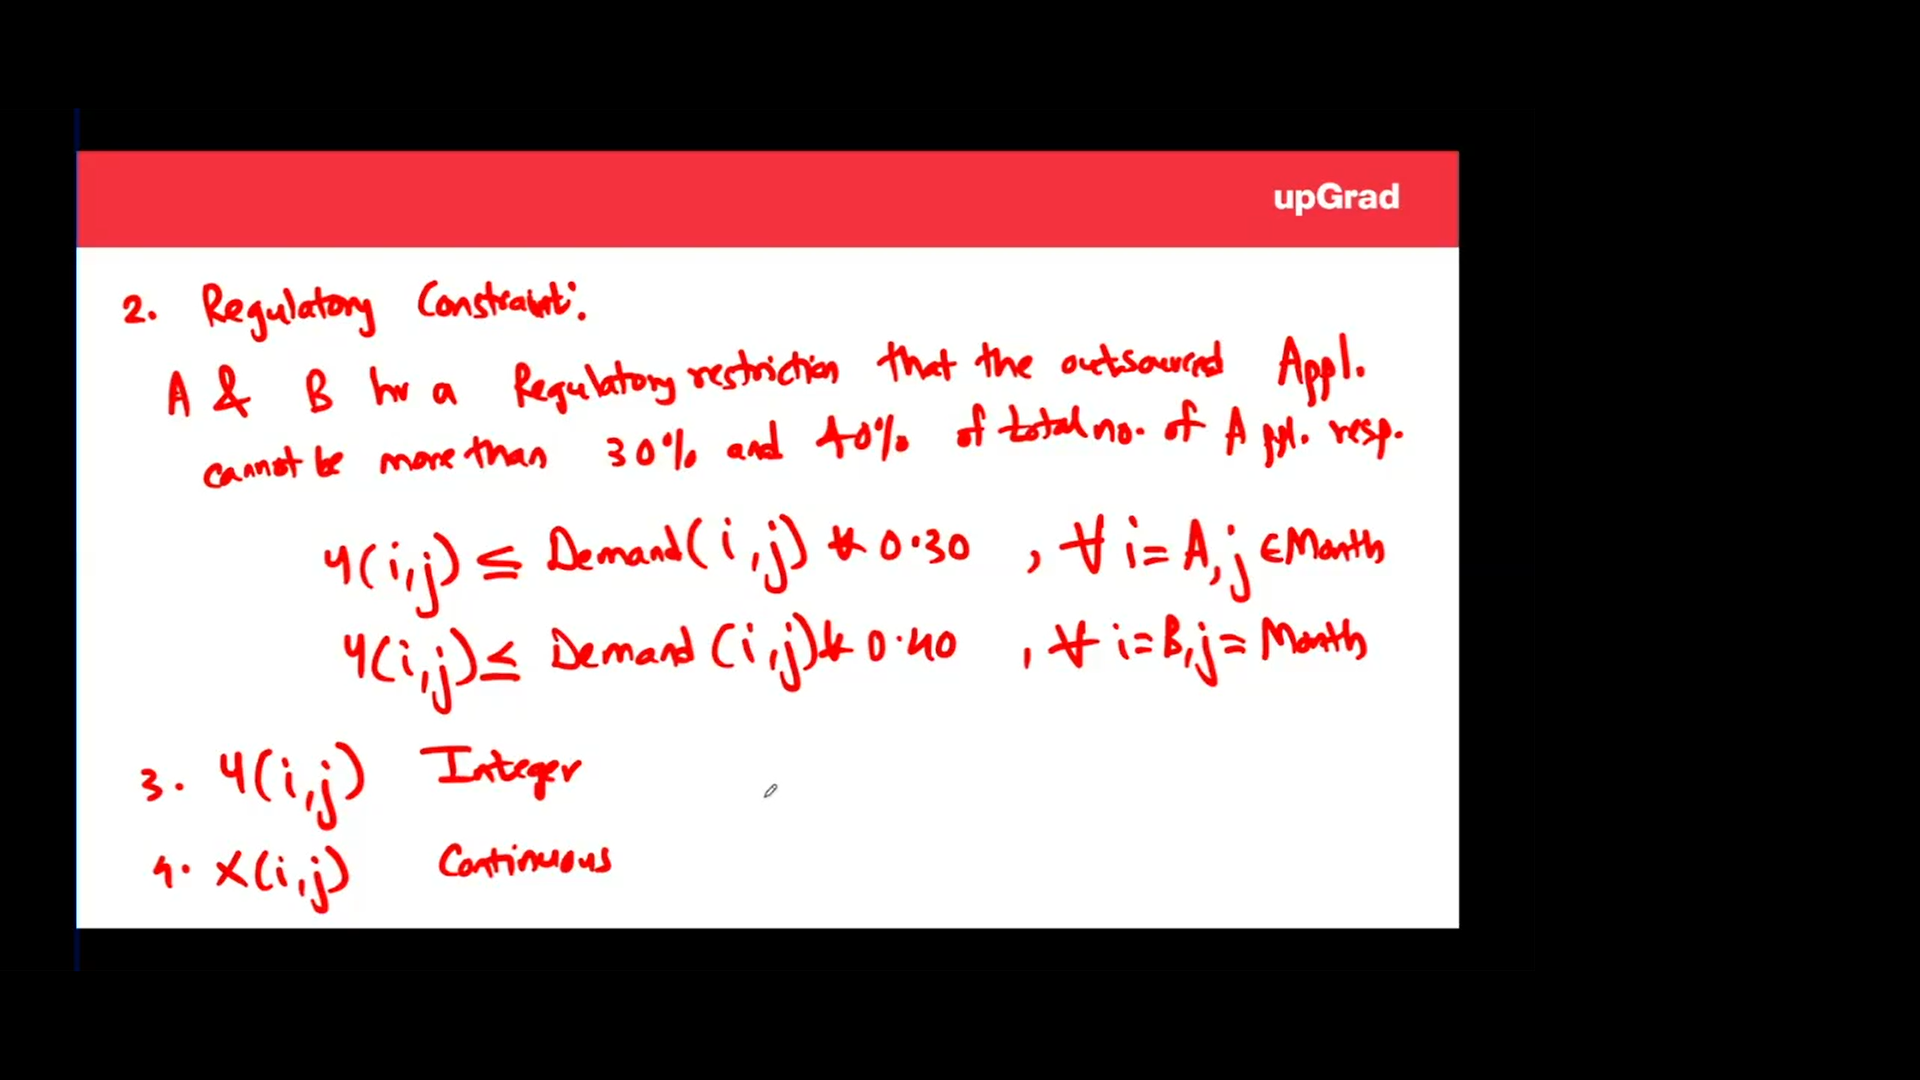 upGrad
2. Regulatory Constraint:
A & B hv a Regulatory restriction that the outsourced Appl.
cannot be more than 30% and 40% of total no. of Appl. resp.
Y(i,j) ≤ Demand(i,j) * 0.30 , ∀ i=A,j ∈ Month
Y(i,j) ≤ Demand(i,j) * 0.40 , ∀ i=B,j = Month
3. Y(i,j) Integer
4. X(i,j) Continuous